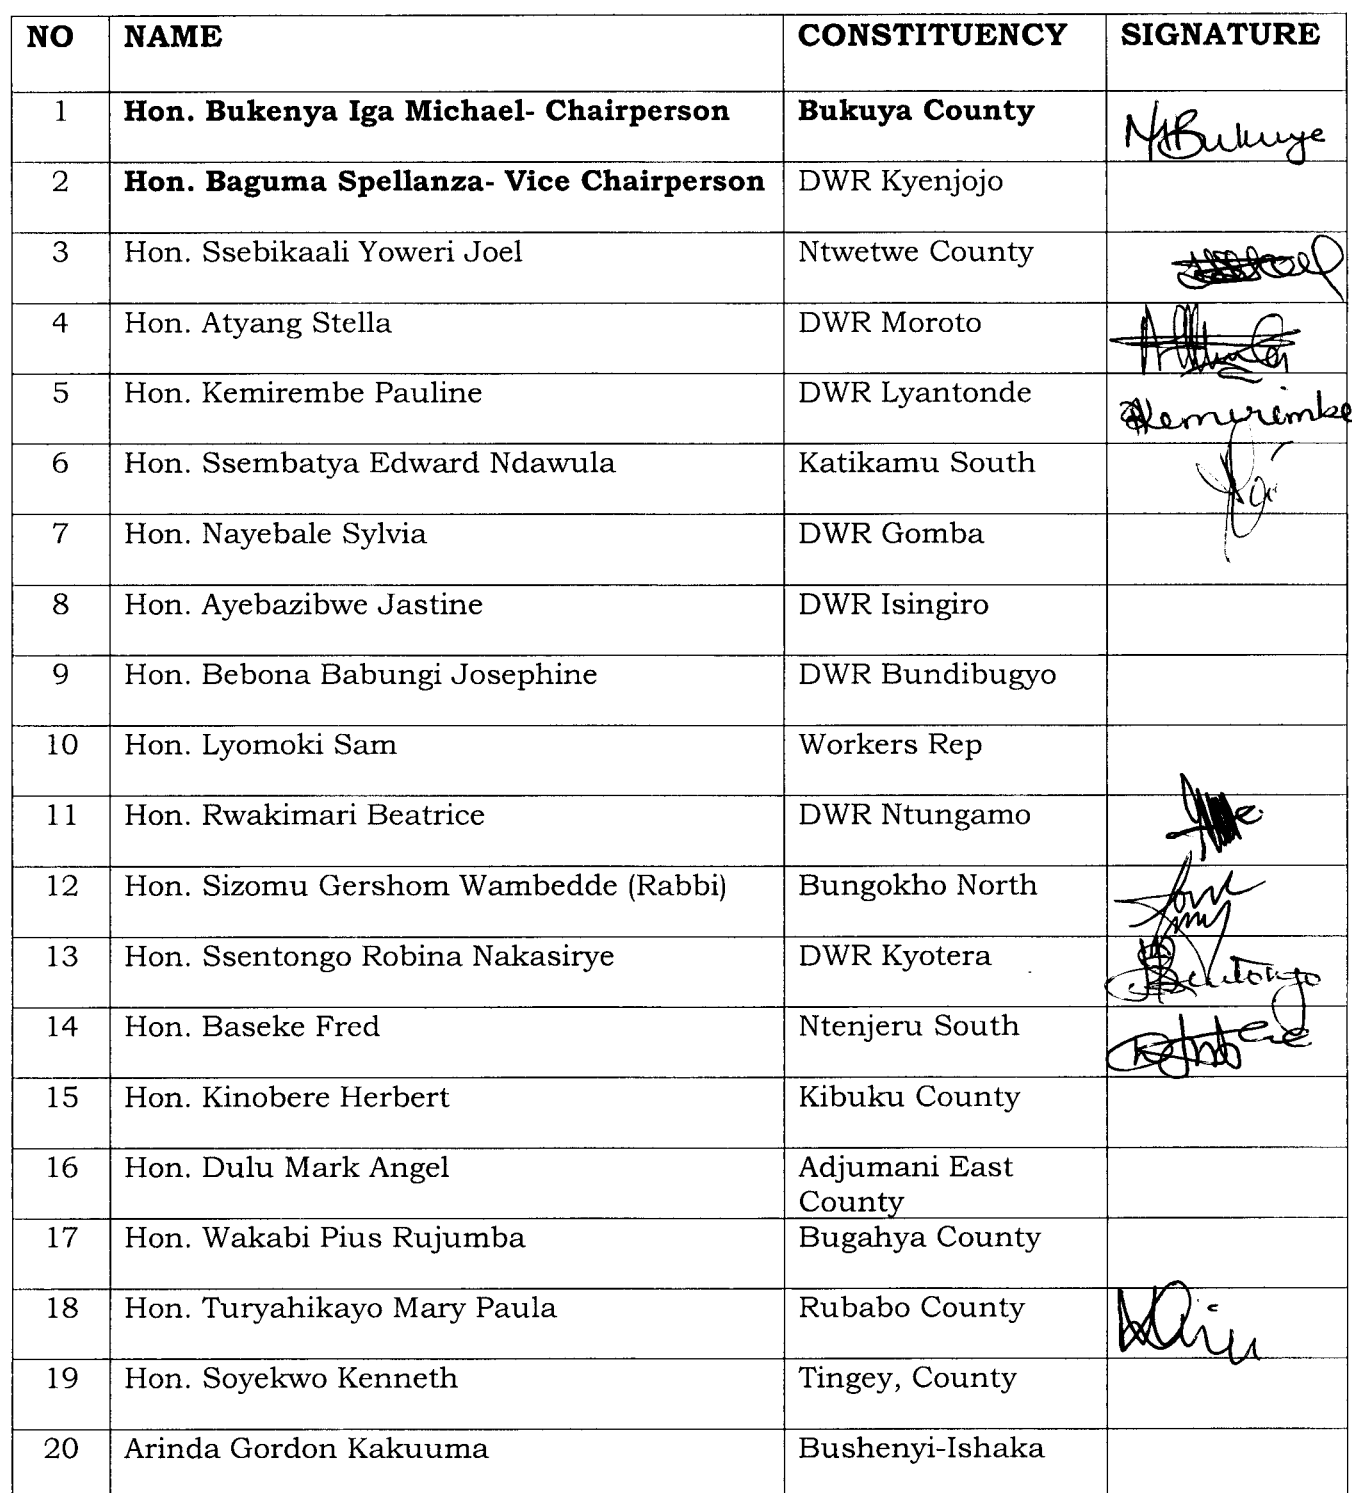 NO NAME CONSTITUENCY SIGNATURE
1 Hon. Bukenya Iga Michael- Chairperson Bukuya County
2 Hon. Baguma Spellanza- Vice Chairperson DWR Kyenjojo
3 Hon. Ssebikaali Yoweri Joel Ntwetwe County
4 Hon. Atyang Stella DWR Moroto
5 Hon. Kemirembe Pauline DWR Lyantonde
6 Hon. Ssembatya Edward Ndawula Katikamu South
7 Hon. Nayebale Sylvia DWR Gomba
8 Hon. Ayebazibwe Jastine DWR Isingiro
9 Hon. Bebona Babungi Josephine DWR Bundibugyo
10 Hon. Lyomoki Sam Workers Rep
11 Hon. Rwakimari Beatrice DWR Ntungamo
12 Hon. Sizomu Gershom Wambedde (Rabbi) Bungokho North
13 Hon. Ssentongo Robina Nakasirye DWR Kyotera
14 Hon. Baseke Fred Ntenjeru South
15 Hon. Kinobere Herbert Kibuku County
16 Hon. Dulu Mark Angel Adjumani East
County
17 Hon. Wakabi Pius Rujumba Bugahya County
18 Hon. Turyahikayo Mary Paula Rubabo County
19 Hon. Soyekwo Kenneth Tingey, County
20 Arinda Gordon Kakuuma Bushenyi-Ishaka